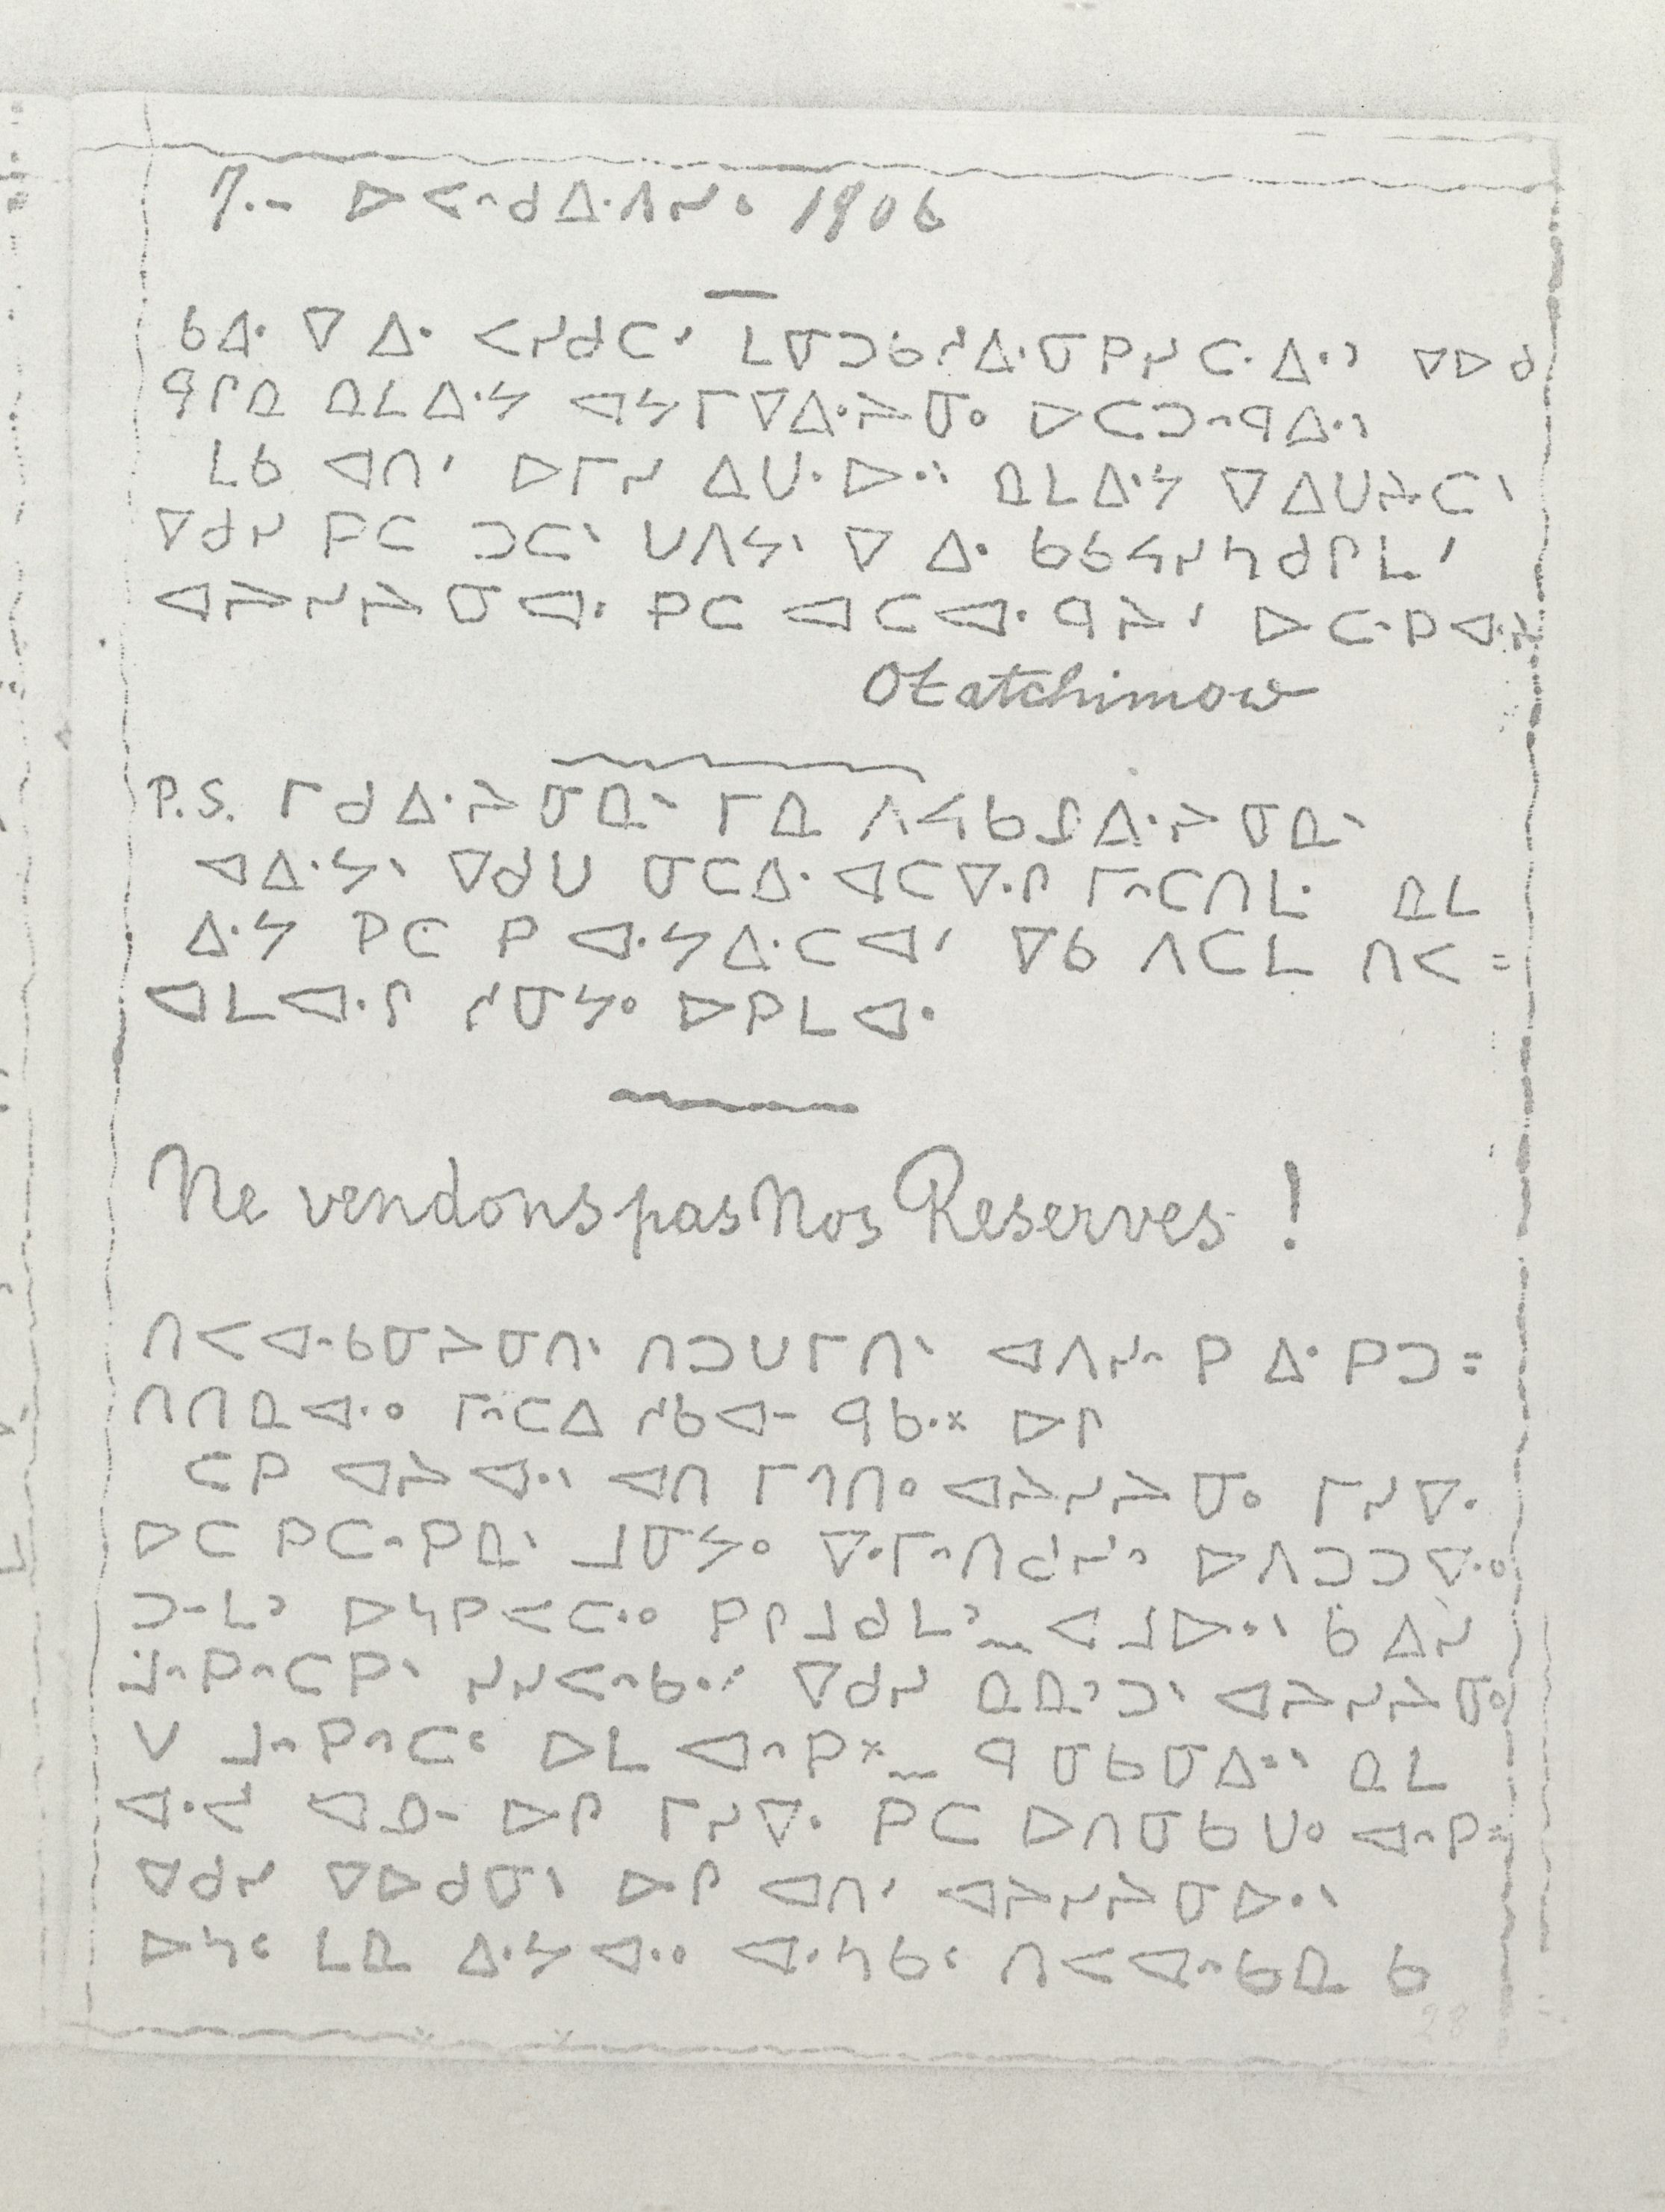 7.- ᐅᐸᐢᑯᐃᐧᐱᓯᒼ 1906
ᑲᐃᐧ ᐁ ᐃᐧ ᐸᓯᑯᑕᐟ ᒪᓂᑐᑲᓱᐃᐧᓂᑭᓯᑕᐧᐃᐧᐣ ᐁᐅᑯ
ᑫᒋᓇ ᓇᒪᐃᐧᔭ ᐊᔭᒥᐁᐃᐧᔨᓂᐤ ᐅᑕᑐᐢᑫᐃᐧᐠ
ᒪᑲ ᐊᑎᐟ ᐅᒥᓯ ᐃᑌᐧᐅᐧᐠ ᓇᒪᐃᐧᔭ ᐁᐃᑌᔨᑕᐠ
ᐁᑯᓯ ᑭᑕ ᑐᑕᐠ ᑌᐱᔭᐠ ᐁ ᐃᐧ ᑲᑲᔦᓯᓴᑯᒋᒪᐟ
ᐊᔨᓯᔨᓂᐊᐧ ᑭᑕ ᐊᑕᐊᐧᑫᔨᐟ ᐅᑕᐢᑭᐊᐧᔨ
Otatchimow
P.S. ᒥᑯᐃᐧᔨᓂᓇᐠ ᒥᓇ ᐱᐸᑲᓄᐃᐧᔨᓂᓇᐠ
ᐊᐃᐧᔭᐠ ᐁᑯᑌ ᓂᑕᐃᐧ ᐊᑕᐁᐧᒋ ᒥᐢᑕᑎᒪᐧ ᓇᒪ
ᐃᐧᔭ ᑭᑕ ᑭ ᐊᐧᔭᐃᐧᑕᐊᐟ ᐁᑲ ᐱᑕᒪ ᑎᐸ=
ᐊᒪᐊᐧᒋ ᓱᓂᔭᐤ ᐅᑭᒪᐊᐧ
Ne vendons pas Nos Reserves !
ᑎᐸᐊᐢᑲᓂᔨᓂᑎᐠ ᑎᑐᑌᒥᑎᐠ ᐊᐱᓯᐢ ᑭ ᐃᐧ ᑭᑐ=
ᑎᑎᓇᐊᐧᐤ ᒥᐢᑕᐃ ᓱᑲᐊᐨ ᑫᑲᐧ᙮ ᐅᒋ
ᑕᑭ ᐊᔨᐊᐧᐠ ᐊᑎ ᒥᒉᑎᐤ ᐊᔨᓯᔨᓂᐤ ᒥᓯᐁᐧ
ᐅᑕ ᑭᑕᐢᑭᓇᐠ ᒧᓂᔭᐤ ᐁᐧᒥᐢᑎᑯᓯᐢ ᐅᐱᑐᑐᐁᐧᐤ
ᑐᐨᒪᐣ ᐅᓴᑭᐸᑕᐧᐤ ᑭᒋᒧᑯᒪᐣ ᐸᒧᐅᐧᐠ ᑲ ᐃᓯ
ᒨᐢᑭᐢᑕᑭᐠ ᓯᓯᐸᐢᑲᐧᐟ ᐁᑯᓯ ᓇᓇᐣᑐᐠ ᐊᔨᓯᔨᓂᐤ
ᐯ ᒧᐢᑭᐢᑕᑦ ᐅᒪ ᐊᐢᑭ᙮ ᑫ ᓂᑲᓂᐃᐧᐠ ᓇᒪ
ᐊᐧᐹ ᐊᓄᐨ ᐅᒋ ᒥᓯᐁᐧ ᑭᑕ ᐅᑎᓂᑲᑌᐤ ᐊᐢᑭ᙮
ᐁᑯᓯ ᐁᐅᑯᓂᐠ ᐅᒋ ᐊᑎᐟ ᐊᔨᓯᔨᓂᐅᐧᐠ
ᐅᓴᑦ ᒪᓇ ᐃᐧᔭᐊᐧᐤ ᐊᐧᓴᑲᑦ ᑎᐸᐊᐢᑲᓇ ᑲ